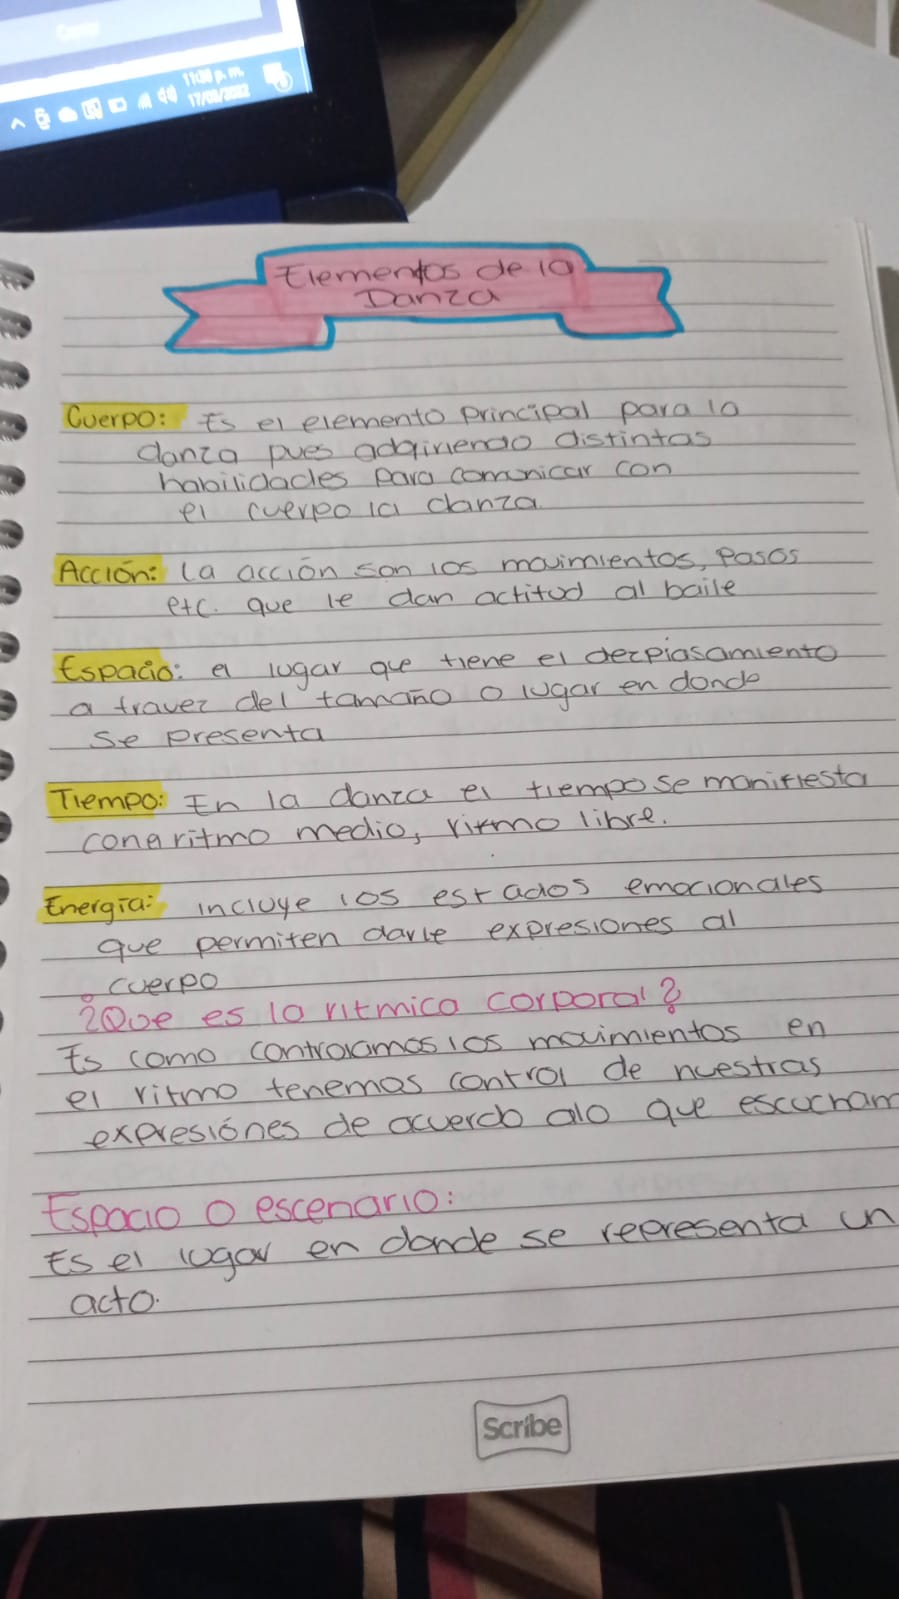 11:38 p.m.
17/08/2022
Elementos de la
Danza
Cuerpo: Es el elemento principal para la
danza pues adqiriendo distintas
habilidades para comunicar con
el cuerpo la danza.
Acción: La acción son los movimientos, pasos
etc. que le dan actitud al baile
Espacio: el lugar que tiene el dezplasamiento
a travez del tamaño o lugar en donde
se presenta
Tiempo: En la danza el tiempo se manifiesta
con ritmo medio, ritmo libre.
Energía: incluye los estados emocionales
que permiten darle expresiones al
cuerpo
¿Que es la ritmica corporal?
Es como controlamos los movimientos en
el ritmo tenemos control de nuestras
expresiónes de acuerdo alo que escucham
Espacio o escenario:
Es el lugar en donde se representa un
acto.
Scribe